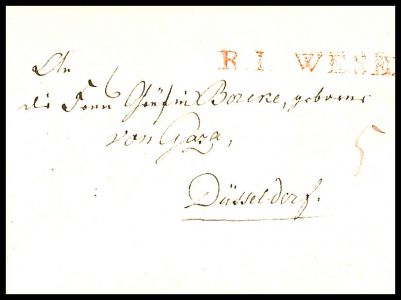 R. I. WESE
An
die Frau Gräfin Borcke, geborne
von Gaza,
5
Düsseldorf.